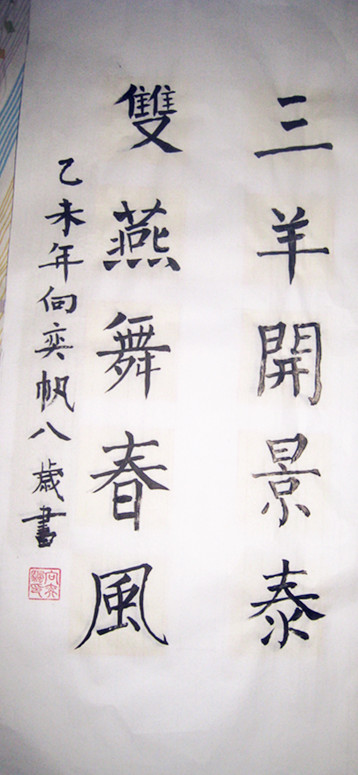 三羊開景泰
雙燕舞春風
乙未年向奕帆八歲書